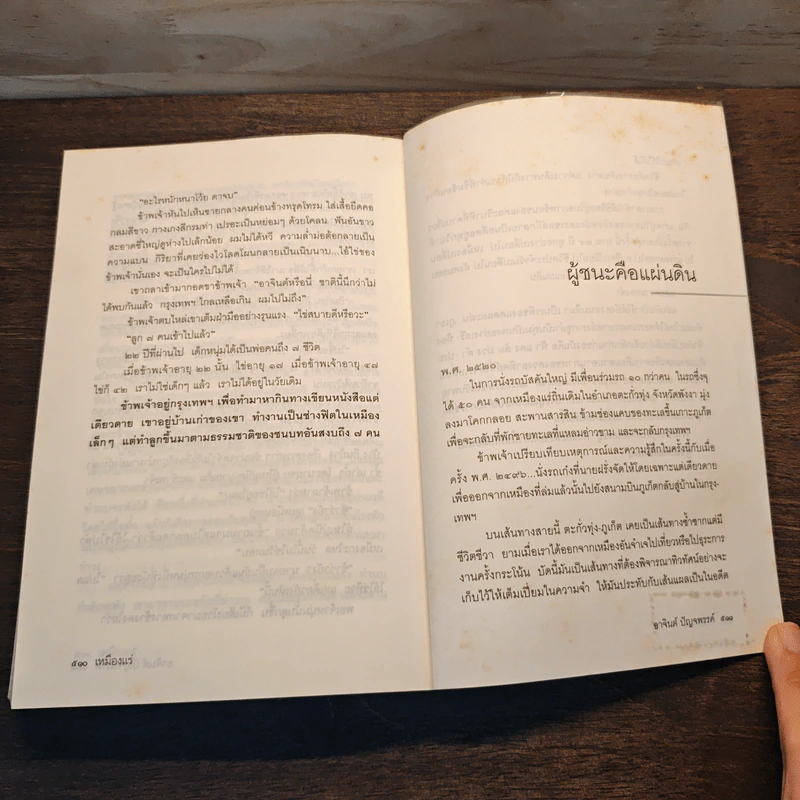 "อะไรหนักหนาโว้ย ดาจบ"
ข้าพเจ้าหันไปเห็นชายกลางคนค่อนข้างทรุดโทรม ใส่เสื้อยืดคอ
กลมสีขาว กางเกงสีกรมท่า เปรอะเป็นหย่อมๆ ด้วยโคลน ฟันอันขาว
สะอาดซี่ใหญ่ดูห่างไปเล็กน้อย ผมไม่ได้หวี ความล่ำม่อต้อกลายเป็น
ความแบน กิริยาที่เคยว่องไวโลดโผนกลายเป็นเนิบนาบ...ใช้ไข่ของ
ข้าพเจ้านั่นเอง จะเป็นใครไปไม่ได้
เขาถลาเข้ามากอดขาข้าพเจ้า "อาจินต์หรือนี่ ชาตินี้นึกว่าไม่
ได้พบกันแล้ว กรุงเทพฯ ไกลเหลือเกิน ผมไปไม่ถึง"
ข้าพเจ้าตบไหล่เขาเต็มฝ่ามืออย่างรุนแรง "ไข่สบายดีหรือวะ"
"ลูก ๗ คนเข้าไปแล้ว"
๒๒ ปีที่ผ่านไป เด็กหนุ่มได้เป็นพ่อคนถึง ๗ ชีวิต
เมื่อข้าพเจ้าอายุ ๒๒ นั้น ไข่อายุ ๑๗ เมื่อข้าพเจ้าอายุ ๔๗
ไข่ก็ ๔๒ เราไม่ใช่เด็กๆ แล้ว เราไม่ได้อยู่ในวัยเดิม
ข้าพเจ้าอยู่กรุงเทพฯ เพื่อทำมาหากินทางเขียนหนังสือแต่
เดียวดาย เขาอยู่บ้านเก่าของเขา ทำงานเป็นช่างฟิตในเหมือง
เล็กๆ แต่ทำลูกขึ้นมาตามธรรมชาติของชนบทอันสงบถึง ๗ คน
๕๑๐ เหมืองแร่
ผู้ชนะคือแผ่นดิน
พ.ศ. ๒๕๒๐
ในการนั่งรถบัสคันใหญ่ มีเพื่อนร่วมรถ ๑๐ กว่าคน ในรถซึ่งจุ
ได้ ๕๐ คน จากเหมืองแร่ถิ่นเดิมในอำเภอตะกั่วทุ่ง จังหวัดพังงา มุ่ง
ลงมาโคกกลอย สะพานสารสิน ข้ามช่องแคบของทะเลขึ้นเกาะภูเก็ต
เพื่อจะกลับที่พักชายทะเลที่แหลมอ่าวขาม และจะกลับกรุงเทพฯ
ข้าพเจ้าเปรียบเทียบเหตุการณ์และความรู้สึกในครั้งนี้กับเมื่อ
ครั้ง พ.ศ. ๒๔๙๖...นั่งรถเก๋งที่นายฝรั่งจัดให้โดยเฉพาะแต่เดียวดาย
เพื่อออกจากเหมืองที่ล่มแล้วนั้นไปยังสนามบินภูเก็ตกลับสู่บ้านในกรุง-
เทพฯ
บนเส้นทางสายนี้ ตะกั่วทุ่ง-ภูเก็ต เคยเป็นเส้นทางซ้ำซากแต่มี
ชีวิตชีวา ยามเมื่อเราได้ออกจากเหมืองอันจำเจไปเที่ยวหรือไปธุระการ
งานครั้งกระโน้น บัดนี้มันเป็นเส้นทางที่ต้องพิจารณาทิวทัศน์อย่างจะ
เก็บไว้ให้เต็มเปี่ยมในความจำ ให้มันประทับกับเส้นแผลเป็นในอดีต
อาจินต์ ปัญจพรรค์ ๕๑๑